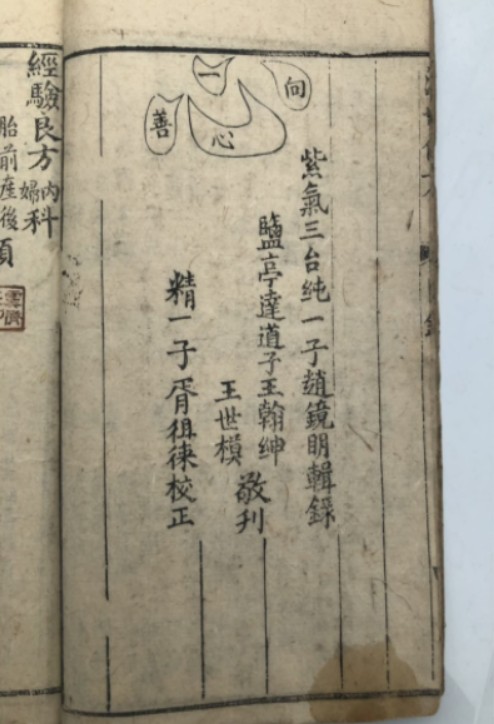 一心向善
紫氣三台純一子趙鏡明輯錄
鹽亭達道子王翰紳
王世模
敬刊
精一子胥徂徠校正
經驗良方內婦科
胎前產後